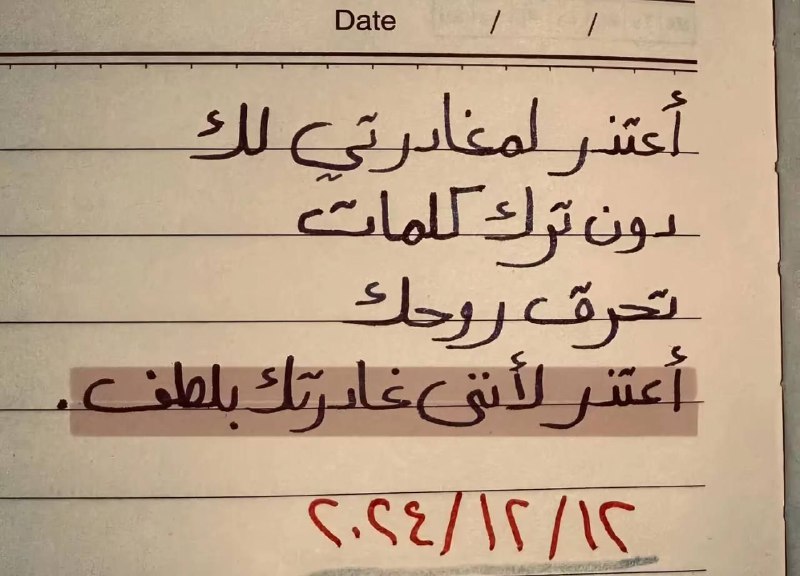 Date / /
أعتذر لمغادرتي لك
دون ترك كلمات
تحرق روحك
أعتذر لأنني غادرتك بلطف.
٢٠٢٤/١٢/١٢